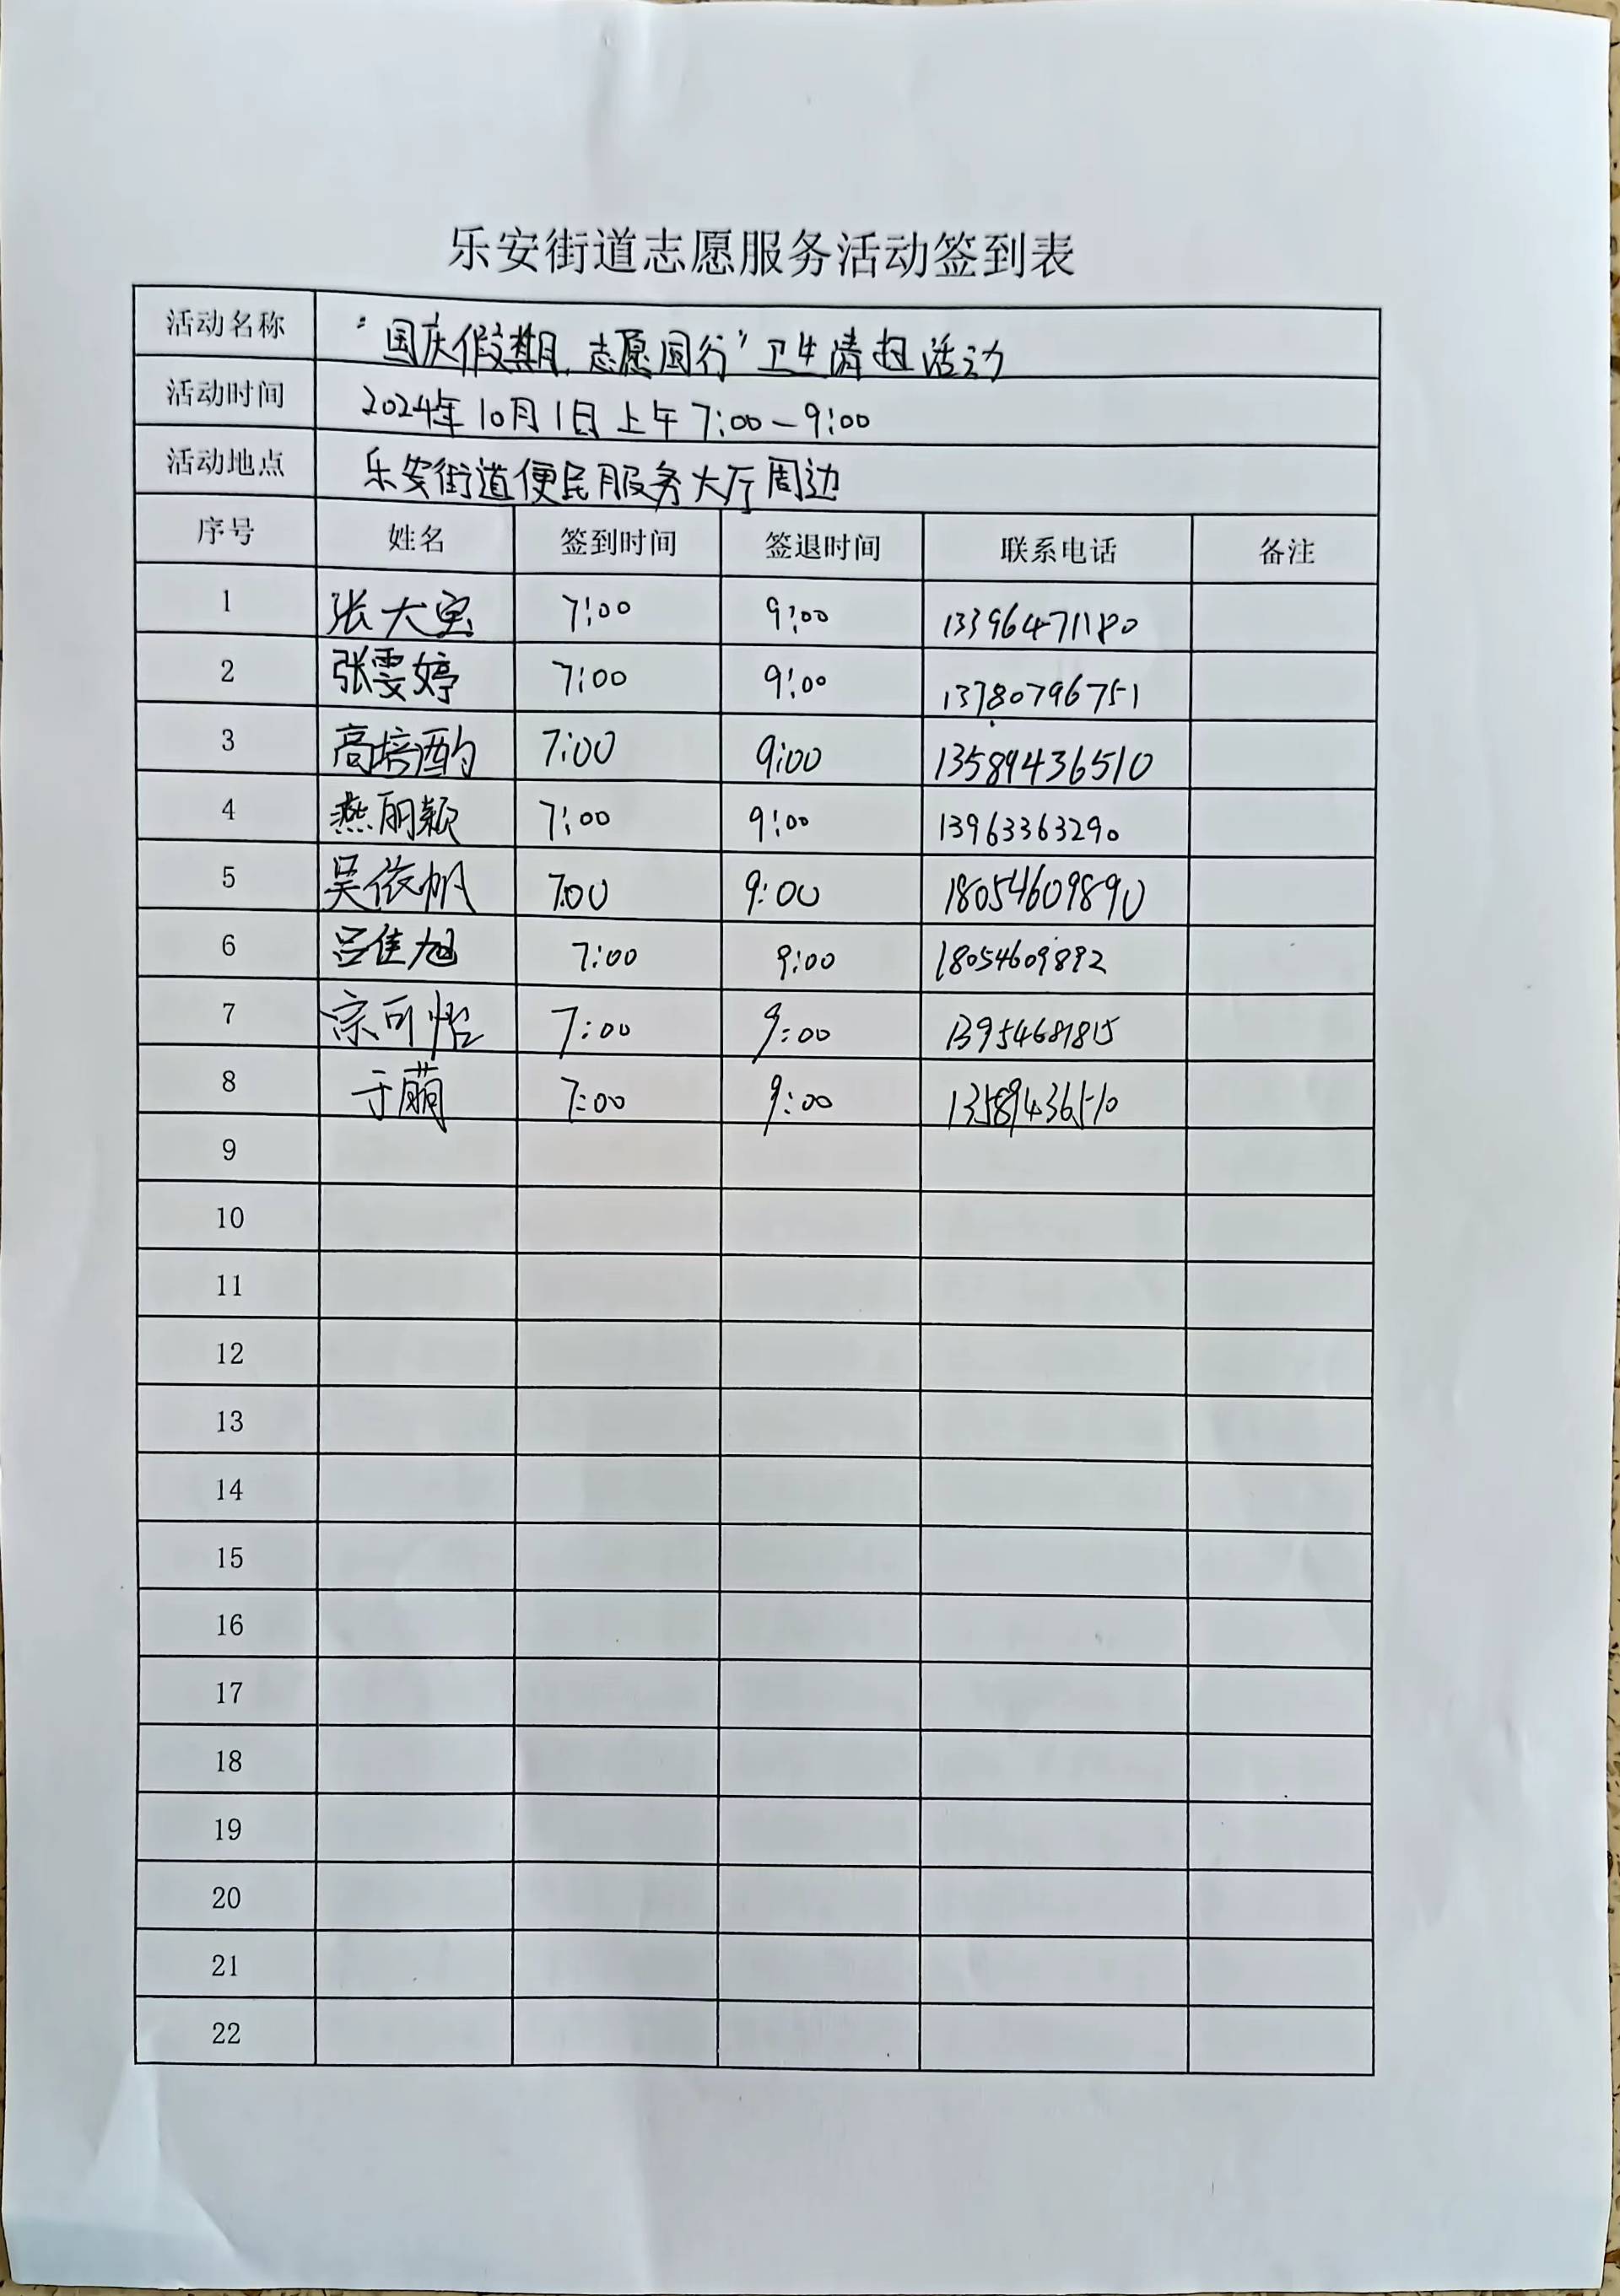 乐安街道志愿服务活动签到表
活动名称 “国庆假期，志愿同行”卫生清扫活动
活动时间 2024年10月1日上午7:00—9:00
活动地点 乐安街道便民服务大厅周边
序号 姓名 签到时间 签退时间 联系电话 备注
1 张大宝 7:00 9:00 13396471180
2 张雯婷 7:00 9:00 13780796751
3 高培酌 7:00 9:00 13589436510
4 燕丽颖 7:00 9:00 13963363290
5 吴依帆 7:00 9:00 18054609890
6 吕佳旭 7:00 9:00 18054609892
7 宗可怡 7:00 9:00 13954681815
8 于萌 7:00 9:00 13589436510
9
10
11
12
13
14
15
16
17
18
19
20
21
22